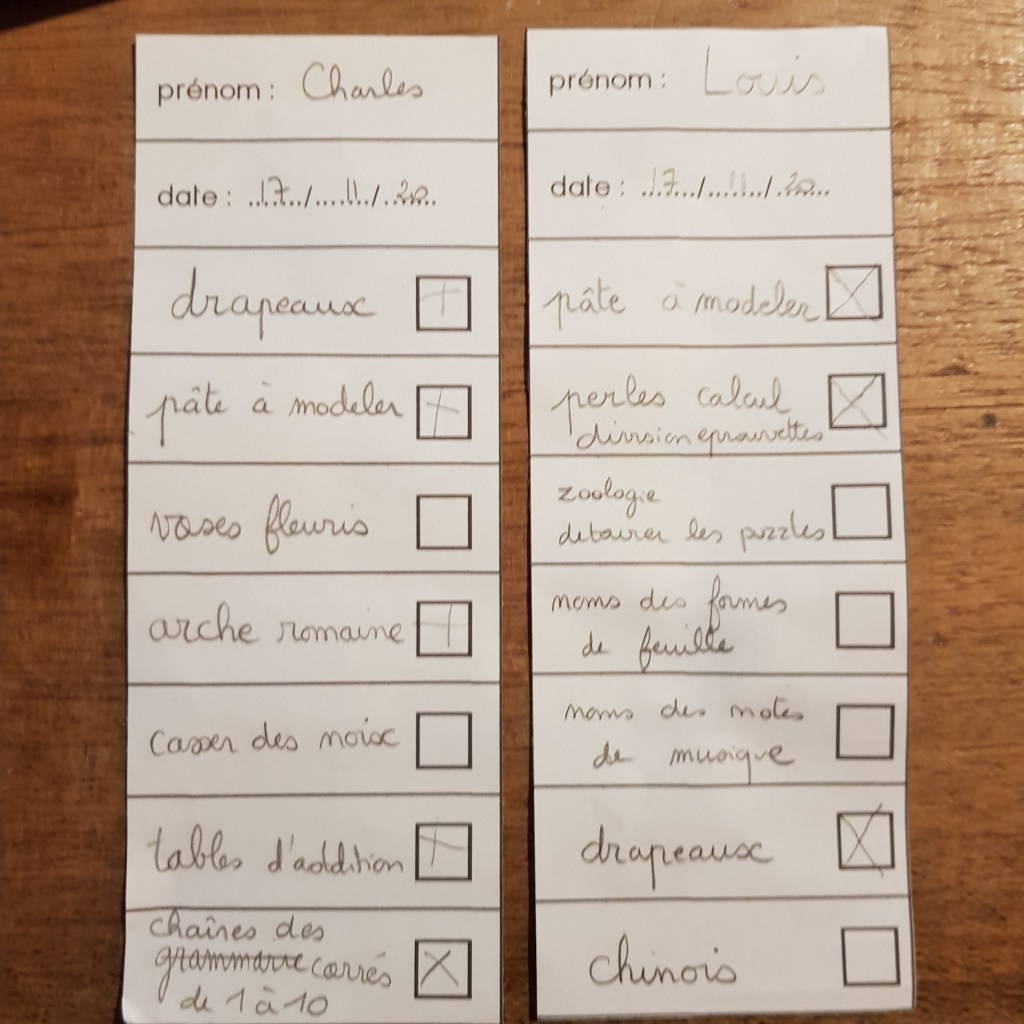 prénom : Charles
date : ..17../....11../..20..
drapeaux
pâte à modeler
vases fleuris
arche romaine
casser des noix
tables d'addition
chaînes des
grammaire carrés
de 1 à 10
prénom : Louis
date : ..17../....11../..20..
pâte à modeler
perles calcul
division eprouvettes
zoologie
detourer les puzzles
noms des formes
de feuille
noms des notes
de musique
drapeaux
chinois